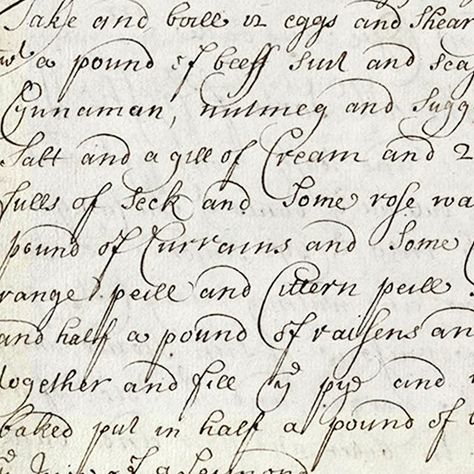 Take and boill 12 eggs and Shear
wt a pound of beeff suit and sea
Cynnaman, nutmeg and sugg
Salt and a gill of Cream and 2
fulls of Seck and Some rose wa
pound of Currains and Some
range peill and Cittern peill
and half a pound of raisens an
together and fill ye pye and
baked put in half a pound of
ye Juice of a Lemond